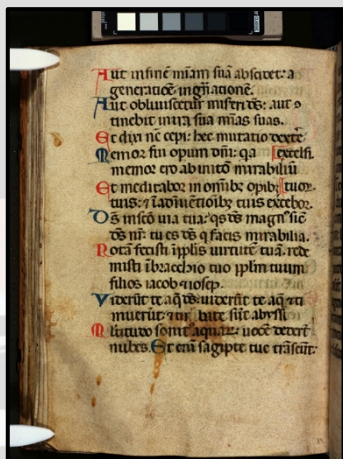 Aut in fine miam sua abscidet: a
generatioe in gnationē.
Aut obliviscetur misereri ds: aut 9
tinebit in ira sua mias suas.
Et dixi nc cepi: hec mutatio dextē
Memor fui opum dni: qa excelsi.
memor ero ab initio mirabiliū
Et meditabor in omībz opibz tuor
tuis: 7 ī adinuētioībz tuis exercebor.
Ds in sco via tua: qs ds magn' sic
ds nr: tu es ds q facis mirabilia.
Notā fecisti ī pplis virtutē tuā: rede
misti ī bracchio tuo pplm tuum
filios iacob 7 iosep.
Viderūt te aq ds: viderūt te aq 7 ti
muerūt: 7 tur bate sūt abyssi
Multitudo sonit' aquar: vocē dederūt
nubes. Et eni sagipte tue trāseūt: